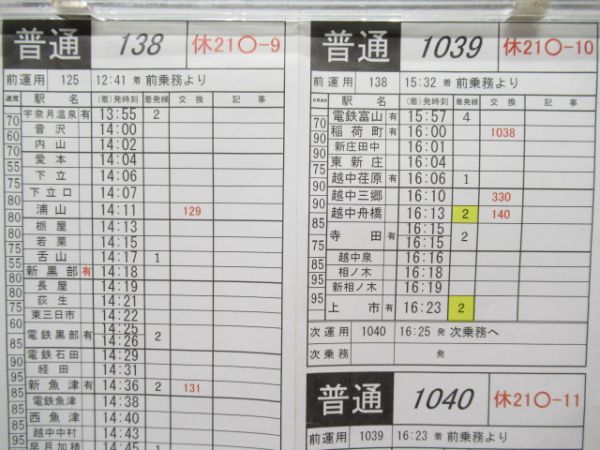 普通 138 休21〇-9
前運用 125 12:41 着 前乗務より
速度 駅名 (着)発時刻 着発線 交換 記事
宇奈月温泉 有 13:55 2
70
音沢 14:00
60
内山 14:02
70
愛本 14:04
55
下立 14:06
75
下立口 14:07
80
浦山 14:11 129
80
栃屋 14:13
若栗 14:15
75
舌山 14:17 1
55
新黒部 有 14:18
80
長屋 14:19
80
荻生 14:21
東三日市 14:22
60
電鉄黒部 有 14:25 14:26 2
85
電鉄石田 14:29
90
経田 14:31
90
新魚津 有 14:36 2 131
85
電鉄魚津 14:38
西魚津 14:40
越中中村 14:43
95
早月加積 14:45
普通 1039 休21〇-10
前運用 138 15:32 着 前乗務より
駅名 (着)発時刻 着発線 交換 記事
電鉄富山 有 15:57 4
70
稲荷町 有 16:00 1038
新庄田中 16:01
東新庄 16:04
75
越中荏原 有 16:06 1
80
越中三郷 16:10 330
越中舟橋 16:13 2 140
85
寺田 有 16:15 16:15 2
85
越中泉 16:16
95
相ノ木 16:18
新相ノ木 16:19
95
上市 有 16:23 2
次運用 1040 16:25 発 次乗務へ
次乗務 発
普通 1040 休21〇-11
前運用 1039 16:23 着 前乗務より